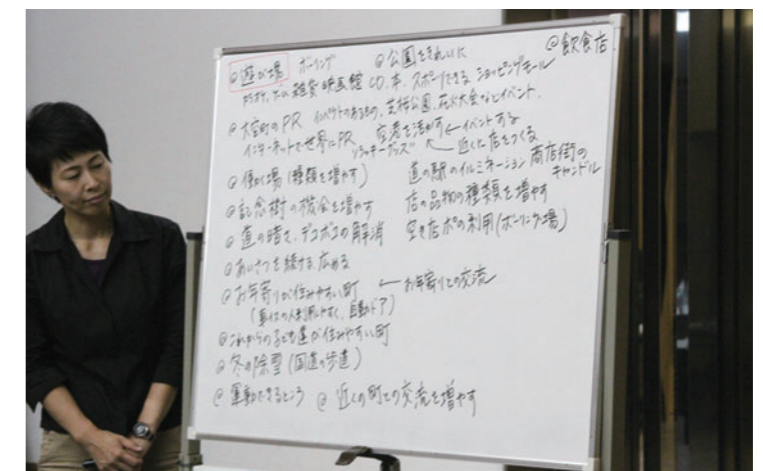 ◎遊び場 ボーリング ◎公園をきれいに ◎飲食店
カラオケ、ゲーム、雑貨 映画館 CD、本、スポーツできる ショッピングモール
◎大宮町のPR インパクトのあるもの、芝桜公園、花火大会などイベント、
インターネットで世界にPR 空港を活かす←イベントする
ラッキーグッズ 近くに店をつくる
◎働く場(種類を増やす) 道の駅のイルミネーション 商店街のキャンドル
◎記念樹の機会を増やす 店の品物の種類を増やす
◎道の暗さ、デコボコの解消 空き店ポの利用(ボーリング場)
◎あいさつを続ける、広める
◎お年寄りが住みやすい町 ←お年寄りとの交流
(車イスの人利用しやすく、自動ドア)
◎これからの子ども達が住みやすい町
◎冬の除雪(国道の歩道)
◎運動できるところ ◎近くの町との交流を増やす